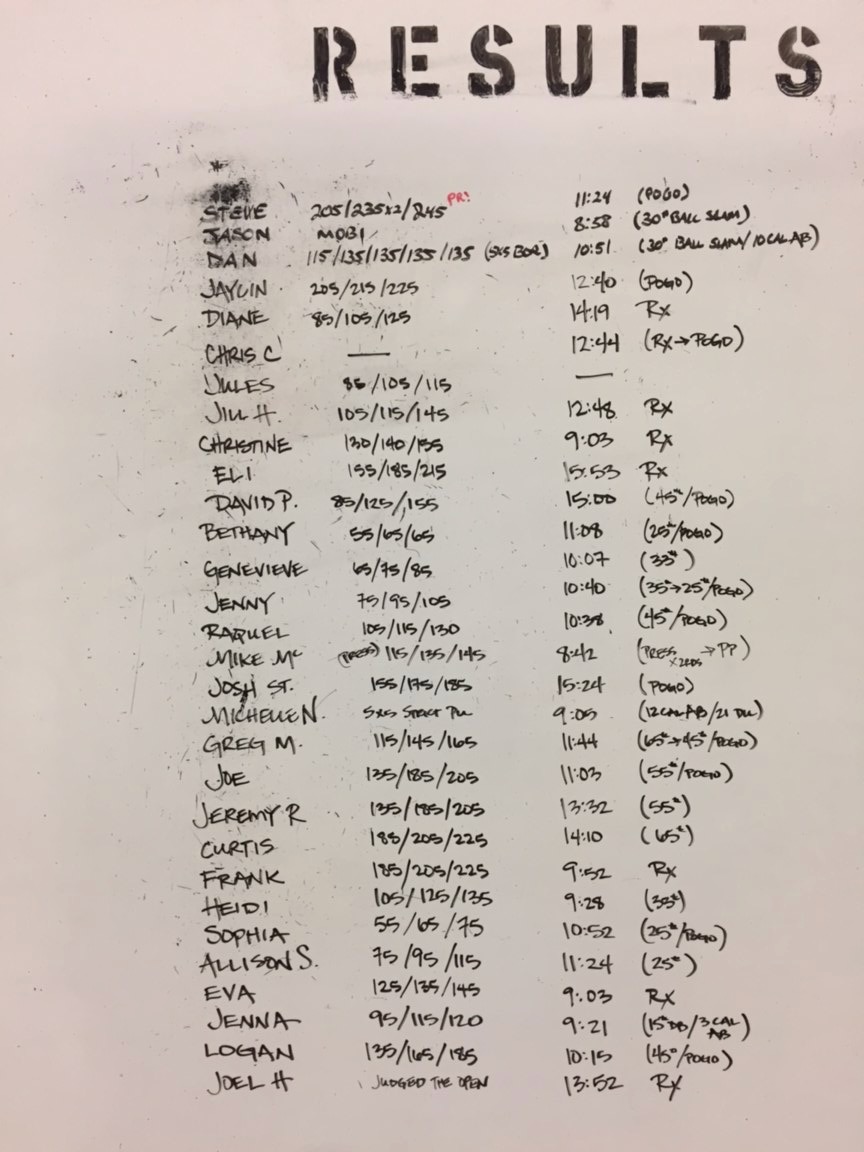 RESULTS
STEVE 205/235x2/245 PR! 11:24 (POGO)
JASON MOBI 8:58 (30# BALL SLAM)
DAN 115/135/135/135/135 (5x5 BOR) 10:51 (30# BALL SLAM/10 CAL AB)
JAYLIN 205/215/225 12:40 (POGO)
DIANE 85/105/125 14:19 Rx
CHRIS C — 12:44 (RX→POGO)
JULES 85/105/115 —
JILL H. 105/115/145 12:48 Rx
CHRISTINE 130/140/155 9:03 Rx
ELI 155/185/215 15:53 Rx
DAVID P. 85/125/155 15:00 (45#/POGO)
BETHANY 55/65/65 11:08 (25#/POGO)
GENEVIEVE 65/75/85 10:07 (33#)
JENNY 75/95/105 10:40 (35#→25#/POGO)
RAQUEL 105/115/130 10:38 (45#/POGO)
MIKE Mc (PRESS) 115/135/145 8:42 (PRESS x2RDS → PP)
JOSH ST. 155/175/185 15:24 (POGO)
MICHELLE N. 5x5 STRICT PU 9:05 (12 CAL AB/21 DU)
GREG M. 115/145/165 11:44 (65#→45#/POGO)
JOE 135/185/205 11:03 (55#/POGO)
JEREMY R 135/185/205 13:32 (55#)
CURTIS 185/205/225 14:10 (65#)
FRANK 185/205/225 9:52 Rx
HEIDI 105/125/135 9:28 (33#)
SOPHIA 55/65/75 10:52 (25#/POGO)
ALLISON S. 75/95/115 11:24 (25#)
EVA 125/135/145 9:03 Rx
JENNA 95/115/120 9:21 (15# DB/3 CAL AB)
LOGAN 135/165/185 10:15 (45#/POGO)
JOEL H JUDGED THE OPEN 13:52 Rx